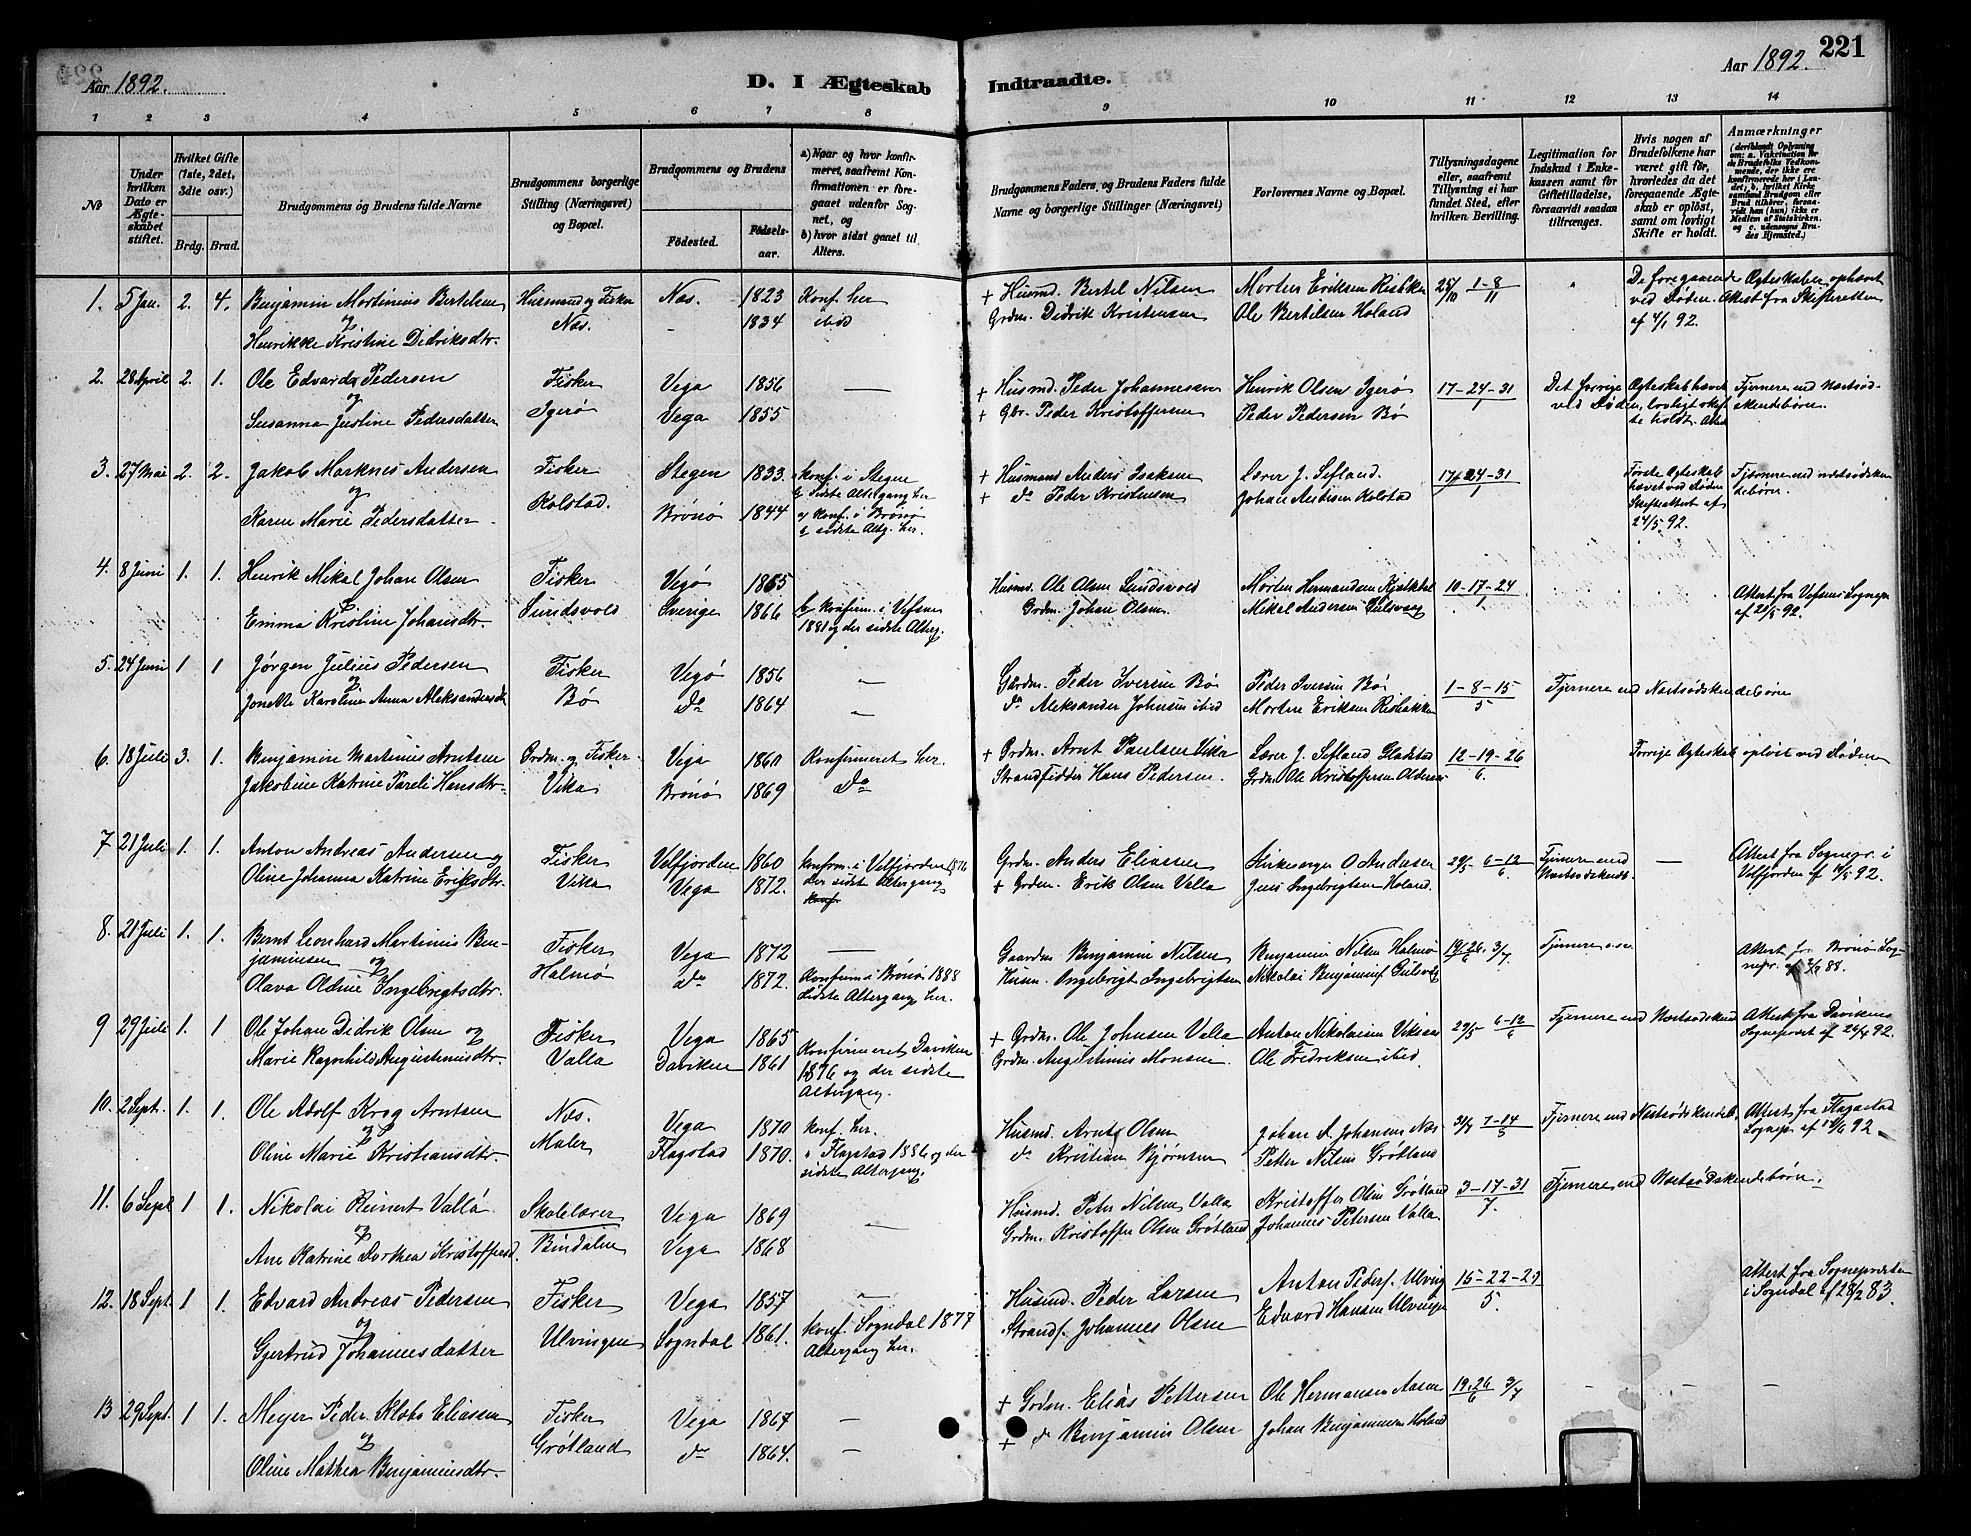 221
Aar 1892.
D. I Ægteskab Indtraadte.
Aar 1892.
1 2 3 4 5 6 7 8 9 10 11 12 13 14
No
Under hvilken Dato er Ægteskabet stiftet.
Hvilket Gifte (1ste, 2det, 3die osv.)
Brdg. Brud.
Brudgommens og Brudens fulde Navne
Brudgommens borgerlige Stilling (Næringsvei) og Bopæl.
Brudgommens og Brudens
Födested.
Födselsaar.
a) Naar og hvor konfirmeret, saafremt Konfirmationen er foregaaet udenfor Sognet, og
b) hvor sidst gaaet til Alters.
Brudgommens Faders, og Brudens Faders fulde Navne og borgerlige Stillinger (Næringsvei)
Forlovernes Navne og Bopæl.
Tillysningsdagene eller, saafremt Tillysning ei har fundet Sted, efter hvilken Bevilling.
Legitimation for Indskud i Enkekassen samt for Giftetilladelse, forsaavidt saadan tiltrænges.
Hvis nogen af Brudefolkene har været gift för, hvorledes da det foregaaende Ægteskab er oplöst, samt om lovligt Skifte er holdt.
Anmærkninger (deriblandt Oplysning om: a. Vakcination for de Brudefolks Vedkommende, der ikke ere konfirmerede her i Landet, b. hvilket Kirkesamfund Brudgom eller Brud tilhører, forsaavidt han (hun) ikke er Medlem af Statskirken, og c. udensogns Brudes Hjemsted.)
1. 5 Jan. 2. 4. Benjamin Martinius Bertelsen Husmand og Fisker Næs. 1823 Konf. her + Husmd. Bertel Nilsen Morten Eriksen Risbakken 25/10 1-8/11 De foregaaende Ægteskaber ophævet
og Næs. - 1834 ibid Grdm. Didrik Kristensen Ole Bertilsen Holand ved Døden. Attest fra Skifteretten
Henrikke Kristine Didriksdtr. af 4/1 92.
2. 28 April 2. 1. Ole Edvard Pedersen Fisker Vega 1856 — + Husmd. Peder Johannesen Henrik Olsen Igerø 17-24-31/1 Det forrige Ægteskab hævet Fjernere end Næstsød-
og Igerø Vega 1855 + Gbr. Peder Kristoffersen Peder Pedersen Bø ved Døden, lovligt skif- skendebörn.
Susanna Justine Pedersdatter te holdt.
3. 27 Mai 2. 2. Jakob Marknes Andersen Fisker Stegen 1833. Konf. i Stegen + Husmand Anders Isaksen Lærer J. Sefland. 17-24-31/1 Første Ægteskab Fjernere end næstsødsken
og Kolstad. Sidste Altergang her + do Peder Kristensen Johan Andersen Kolstad hævet ved Døden debörn.
Karen Marie Pedersdatter Brønø 1844 konf. i Brønø Skifteattest af
sidste Altg. her. 24/5 92.
4. 8 Juni 1. 1. Henrik Mikal Johan Olsen Fisker Vegø 1865 Husmd. Ole Olsen Sundsvold Morten Hermandsen 10-17-24/1 Attest fra Vefsens Sognepr
og Sundsvold Sverige 1866 konfirm. i Vefsen Grdm. Johan Olsen Mikal Andersen Gulsvaag af 21/5 92.
Emma Kristine Johansdtr. 1881 og der sidste Alterg.
5. 24 Juni 1 1 Jørgen Julius Pedersen Fisker Vegø 1856 — Gardm. Peder Iversen Bø Peder Iversen Bø 1-8-15/5 Fjernere end Næstsødskendebörn
og Bø do 1864 — do Aleksander Johnsen ibid Morten Eriksen Risbakken
Jonette Karoline Anna Aleksandersd.
6. 18 Juli 3. 1. Benjamin Martinus Arntsen Grdm. og Fisker Vega 1860 Konfirmeret her. + Grdm. Arnt Paulsen Vika Lærer J. Sefland Gladstad 12-19-26/6. Forrige Ægteskab opløst ved Døden
Jakobine Katrine Pareli Hansdtr. Vika Brønø 1869 do Strandsidder Hans Pedersen. Grdm. Ole Kristoffersen
7 21 Juli 1. 1. Anton Andreas Andersen og Fisker Velfjorden 1860 konfirm. i Velfjorden 1876 Grdm. Anders Eliassen Kirkesanger O Andersen 29/5 6-12/6 Fjernere end — Attest fra Sognepr. i
Oline Johanna Katrine Eriksdtr. Vika Vega 1872. der sidst Altergang + Grdm. Erik Olsen Valla Jens Ingebrigtsen Holand. Næstsødskendb. Velfjorden af 14/5 92.
8. 21 Juli 1. 1. Bernt Leonhard Martinus Ben- Fisker Vega 1872 — Gaardm Benjamin Nilsen Benjamin Nilsen Halmø 19-26/6 3/7 Fjernere Attest fr. Brønø Sog-
jaminsen og Halmø do 1872. Konfirm i Brønø 1888 Husm. Ingebrigt Ingebrigtsen Nikolai Benjaminsf Gulsvaag nepr. 88.
Olava Oldine Ingebrigtsdtr. Sidste Altergang her.
9 29 Juli 1. 1 Ole Johan Didrik Olsen og Fisker Vega 1865 Konfirmeret Daviken + Grdm. Ole Johnsen Valla Anton Nikolaisen 29/5 6-12/6 Fjernere end Næstsødskend Attest fra Davikens
Marie Ragnhild Augustinusdtr. Valla Daviken 1861 1876 og der sidste Grdm. Augustinus Monsen Ole Fredriksen ibid Sogneprest af 24/4 92.
Altergang.
10. 2 Sept. 1. 1. Ole Adolf Krog Arntsen Næs. Vega 1870 konf. her. Husmd. Arnt Olsen Johan A. Johansen Næs 7-14/5 Fjernere end Næstsødskendeb. Attest fra Flagstad
og Maler Flagstad 1870. i Flagstad 1886 og der do Kristian Bjørnsen Petter Nilsen Grøtland Sognepr. 92.
Oline Marie Kristiansdtr. sidste Altergang
11. 6 Sept 1 1. Nikolai Reinert Vallá Skolelærer Vega 1869 — Husmd. Peter Nilsen Valla Kristoffer Olsen Grøtland 3-17-31/7 Fjernere end Næstsødskendebörn.
og Bindalen Vega 1868 Grdm. Kristoffer Olsen Grøtland Johannes Petersen Valla
Ane Katrine Dorthea Kristoffersd
12. 18 Sept. 1 1. Edvard Andreas Pedersen Fisker Vega 1857 — Husmd. Peder Larsen Anton Pedersf. Ulving 15-22-29/5. Attest fra Sognepresten
og Ulvingen Sogndal 1861. konf. Sogndal 1877 Strands. Johannes Olsen Edvard Hansen Ulvingen i Sogndal af 28/2 83.
Gjertrud Johannesdatter Altergang her.
13 29 Sept. 1 1. Meyer Peder Klobo Eliassen Fisker Vega 1867 — + Grdm. Elias Pettersen Ole Hermansen Aasen 19-26/6 3/7 - - -
og Grøtland do 1864. — + do Benjamin Olsen Johan Benjaminsen Holand
Oline Mathea Benjaminsdtr.